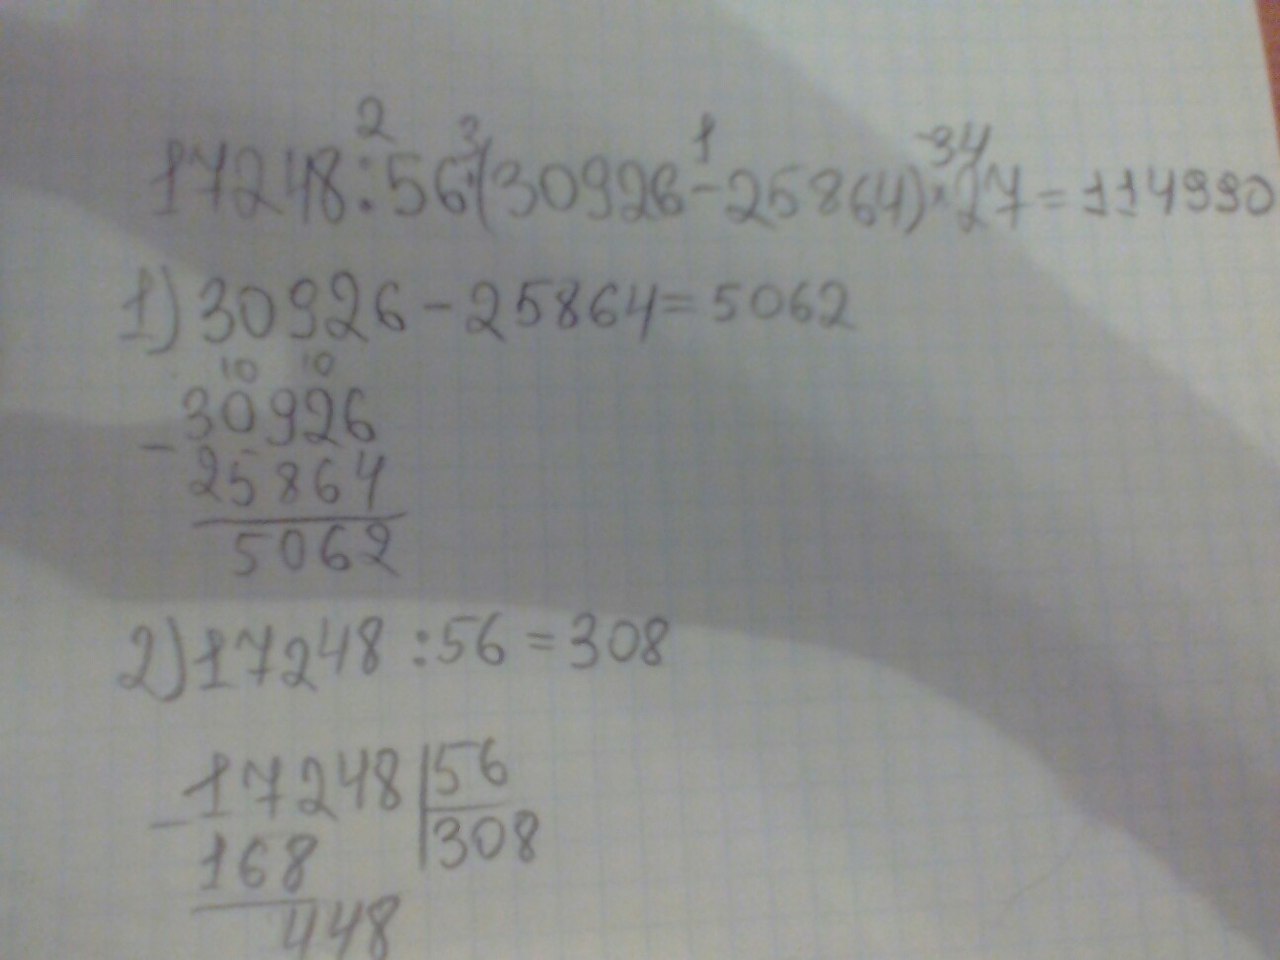 2 3 1 34
17248:56·(30926-25864)·27=114990
1) 30926-25864=5062
10 10
30926
- 25864
5062
2) 17248:56=308
- 17248 | 56
168 308
448